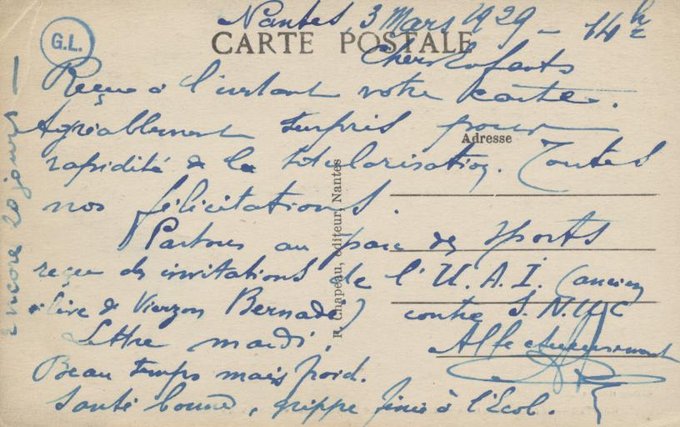 Nantes 3 Mars 1929 - 14h
G.L.
CARTE POSTALE
Chers Enfants
Reçu à l'instant votre carte.
Agréablement surpris pour
Adresse
rapidité de la titularisation. Toutes
nos félicitations.
Partons au parc des Sports
reçu des invitations de l'U.A.I. (ancien
élève de Vierzon Bernade) contre S.N.U.C
Lettre mardi.
Affectueusement
Beau temps mais froid.
Santé bonne, grippe finie à l'Ecol.
encore 20 jours -
F. Chapeau, éditeur, Nantes